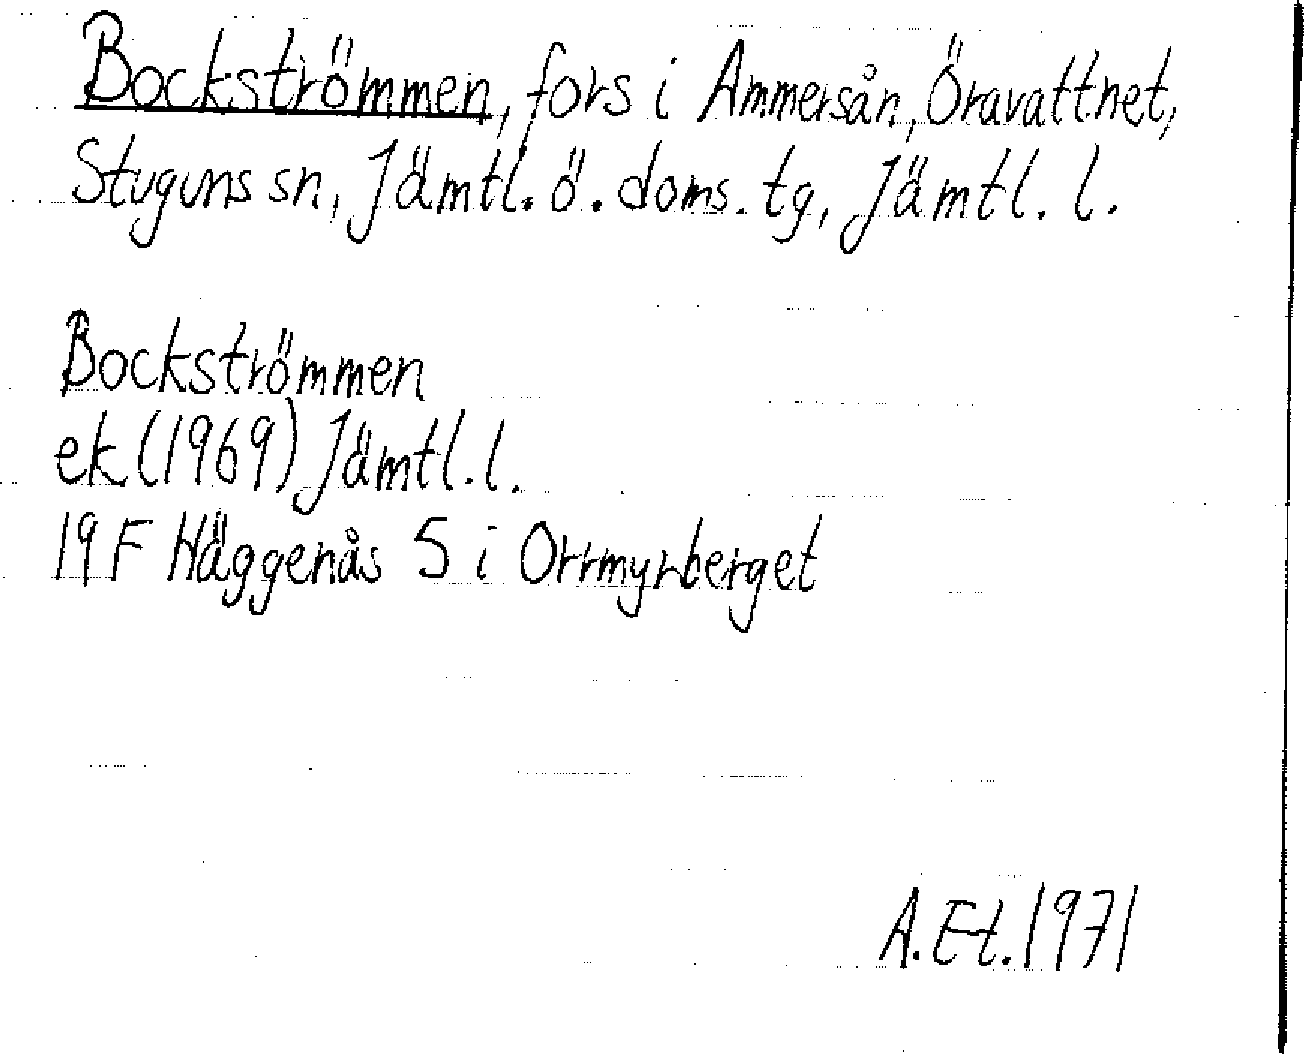 Bockströmmen, fors i Ammersån, Öravattnet,
Stuguns sn, Jämtl. ö. doms. tg, Jämtl. l.
Bockströmmen
ek (1969) Jämtl. l.
19 F Häggenås S i Orrmyrberget
A. Et. 1971